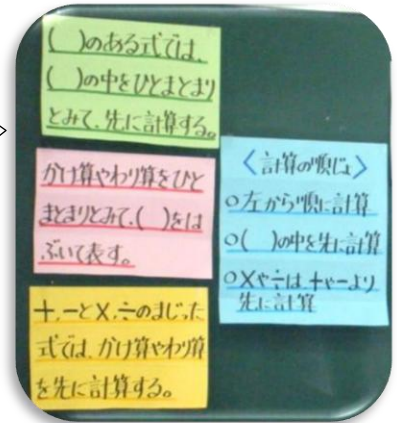 ( )のある式では、
( )の中をひとまとまり
とみて、先に計算する。
かけ算やわり算をひと
まとまりとみて、( )をは
ぶいて表す。
+、-と×、÷のまじった
式では、かけ算やわり算
を先に計算する。
〈計算の順じょ〉
○左から順に計算
○( )の中を先に計算
○×や÷は、+や-より
先に計算